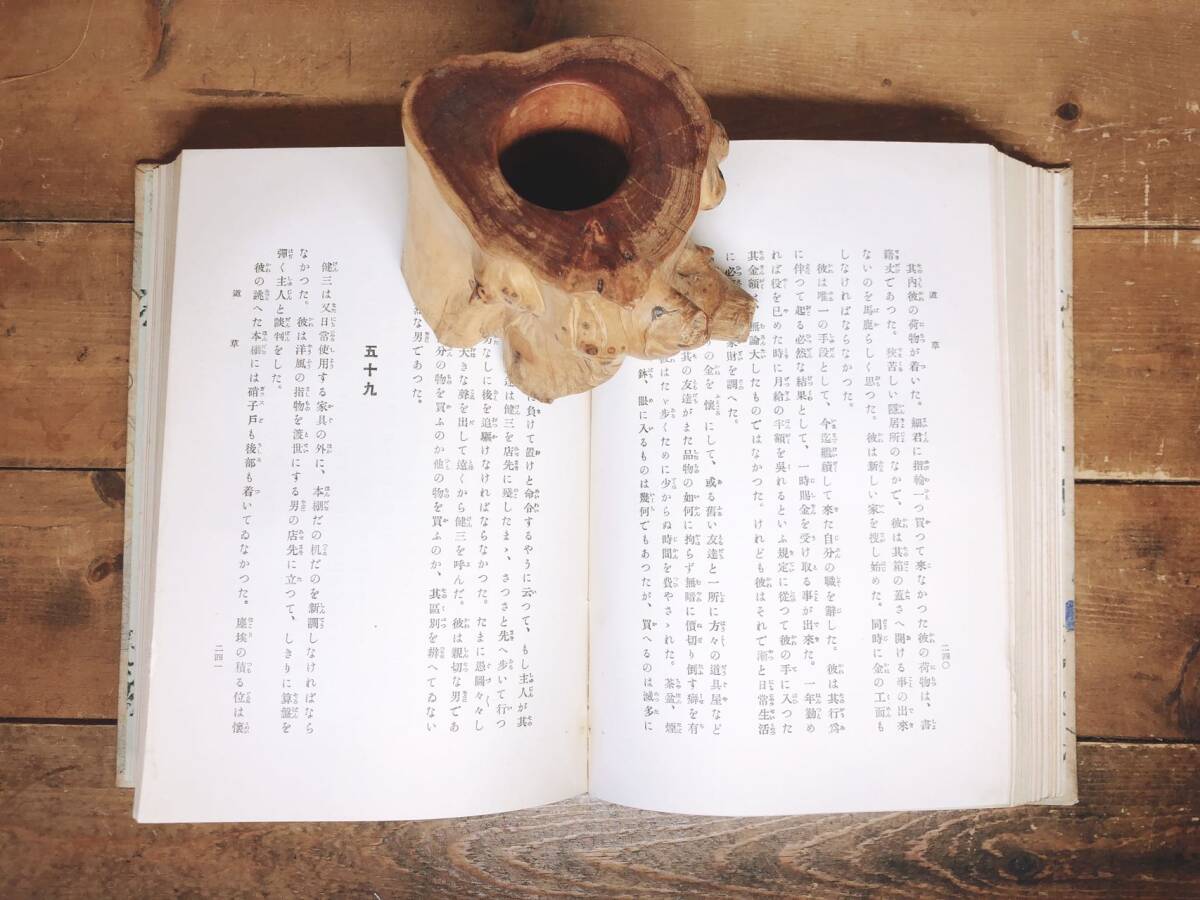 道草
二四〇
其内彼の荷物が着いた。細君に指輪一つ買つて來なかつた彼の荷物は、書
籍丈であつた。狹苦しい隱居所のなかで、彼は其箱の蓋さへ開ける事の出來
ないのを馬鹿らしく思つた。彼は新しい家を搜し始めた。同時に金の工面も
しなければならなかつた。
彼は唯一の手段として、今迄繼續して來た自分の職を辭した。彼は其行爲
に伴つて起る必然な結果として、一時賜金を受け取る事が出來た。一年勤め
れば役を已めた時に月給の半額を呉れるといふ規定に從つて彼の手に入つた
其金額は、無論大したものではなかつた。けれども彼はそれで漸と日常生活
に必
家財を調へた。
の金を懷にして、或る舊い友達と一所に方々の道具屋など
其の友達がまた品物の如何に拘らず無暗に價切り倒す癖を有
はたゞ歩くために少からぬ時間を費やさゝれた。茶盆、烟
鉢、眼に入るものは幾何でもあつたが、買へるのは滅多に
に負けて置けと命令するやうに云つて、もし主人が其
達は健三を店先に殘したまゝ、さつさと先へ歩いて行つ
方なしに後を追驅けなければならなかつた。たまに愚圖々々し
大きな聲を出して遠くから健三を呼んだ。彼は親切な男であ
分の物を買ふのか他の物を買ふのか、其區別を辨へてゐない
な男であつた。
五十九
健三は又日常使用する家具の外に、本棚だの机だのを新調しなければなら
なかつた。彼は洋風の指物を渡世にする男の店先に立つて、しきりに算盤を
彈く主人と談判をした。
彼の誂へた本棚には硝子戸も後部も着いてゐなかつた。塵埃の積る位は懷
道草
二四一